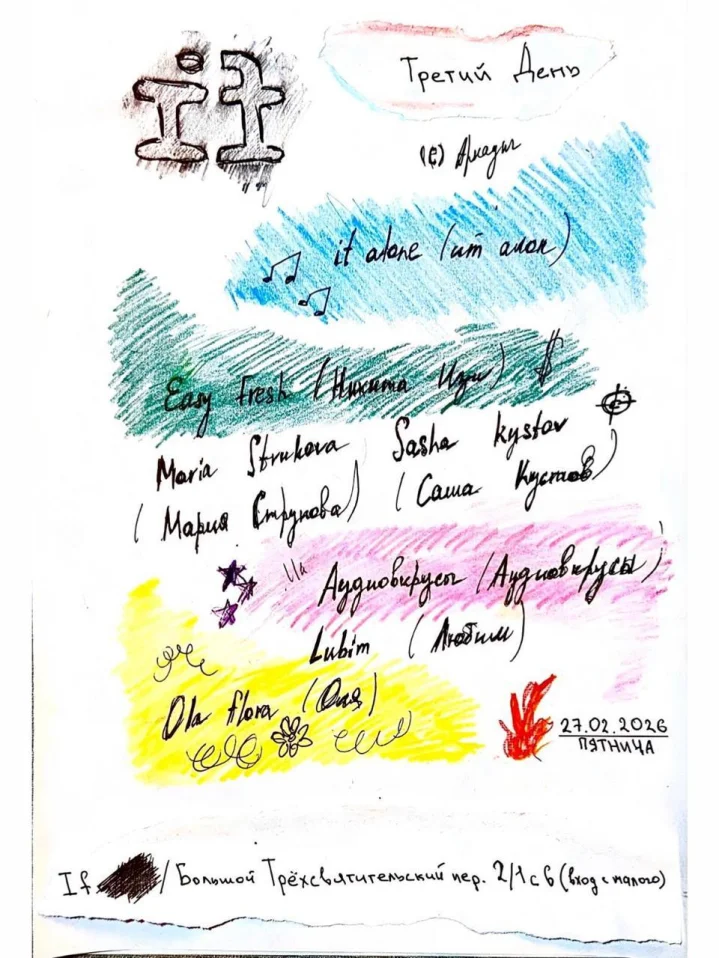 if
Третий День
(с) Аркадия
it alone (ит алон)
Easy Fresh (Никита Изи) $
Maria Strukova Sasha kystov
(Мария Струкова) (Саша Кустов)
Аудиовирусы (Аудиовирусы)
Lubim (Любим)
Ola flora (Оля)
27.02.2026
ПЯТНИЦА
If / Большой Трёхсвятительский пер. 2/1 с 6 (вход с малого)